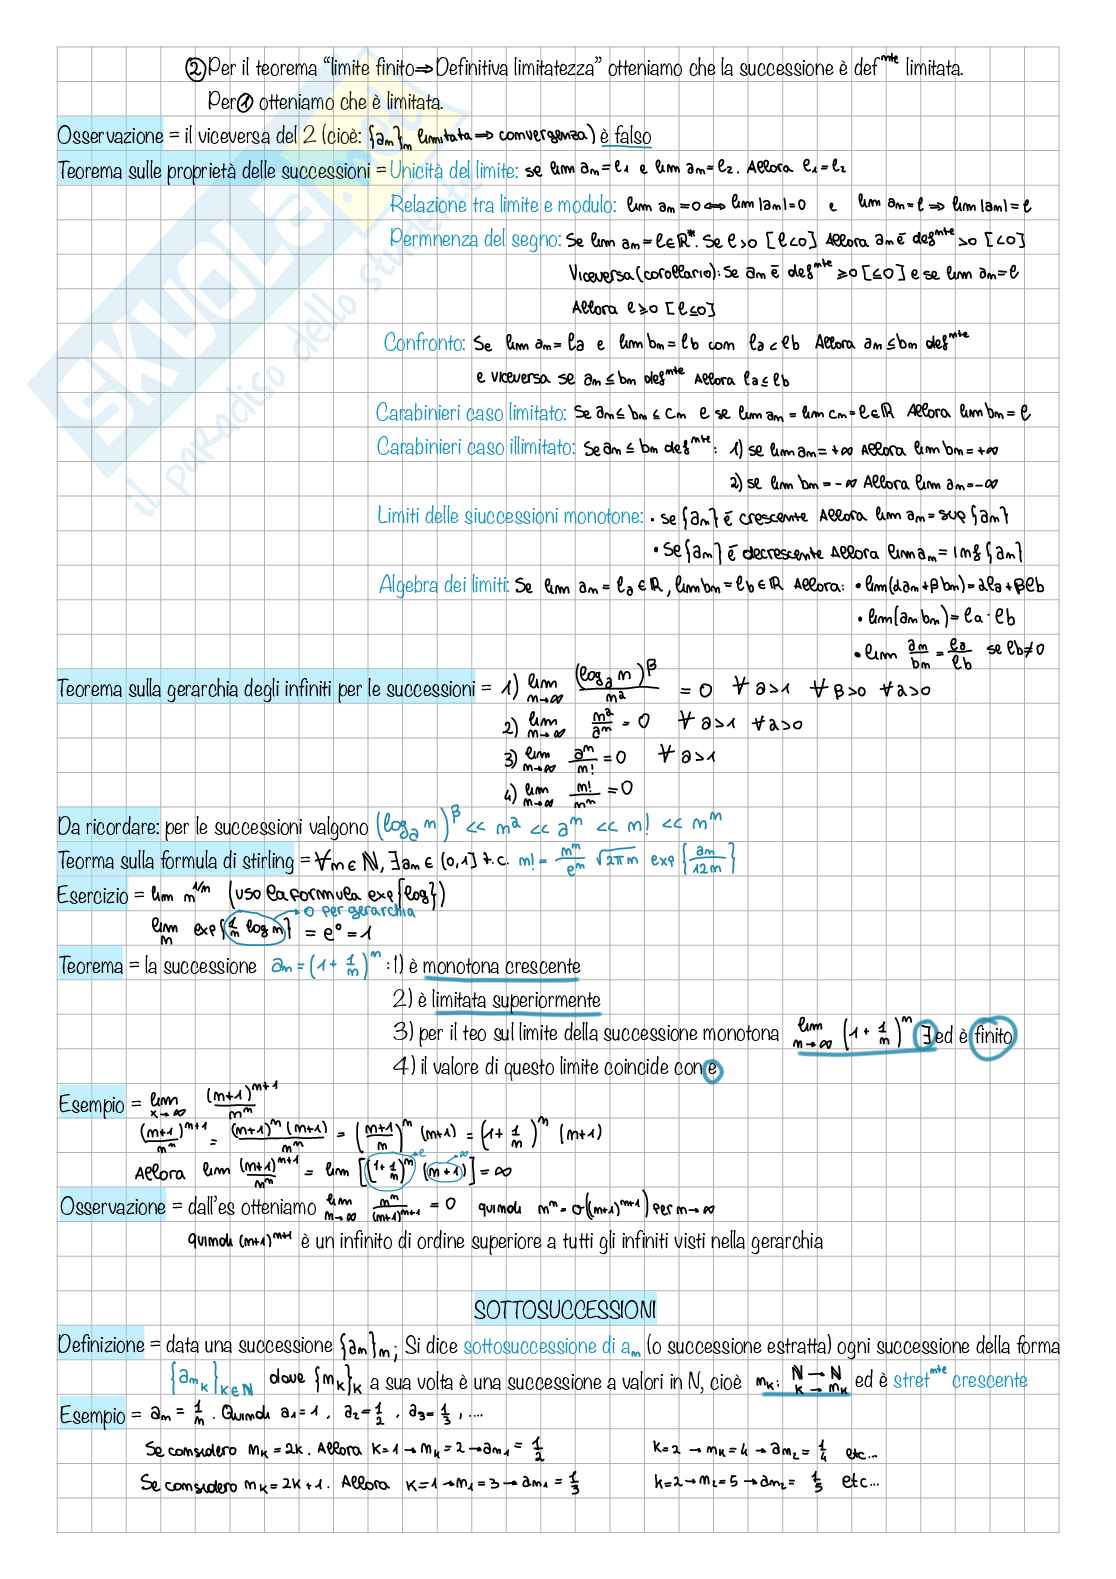 ② Per il teorema “limite finito⇒Definitiva limitatezza” otteniamo che la successione è def^mte limitata.
Per ① otteniamo che è limitata.
Osservazione = il viceversa del 2 (cioè: {an}n limitata ⇒ convergenza) è falso
Teorema sulle proprietà delle successioni = Unicità del limite: se lim an = l1 e lim an = l2. Allora l1 = l2
Relazione tra limite e modulo: lim an = 0 ⟺ lim |an| = 0 e lim an = l ⇒ lim |an| = l
Permnenza del segno: Se lim an = l ∈ R*. Se l>0 [l<0] Allora an è def^mte >0 [<0]
Viceversa (corollario): Se an è def^mte ≥0 [≤0] e se lim an = l
Allora l≥0 [l≤0]
Confronto: Se lim an = la e lim bn = lb con la < lb Allora an ≤ bn def^mte
e viceversa se an ≤ bn def^mte Allora la ≤ lb
Carabinieri caso limitato: Se an ≤ bn ≤ cn e se lim an = lim cn = l ∈ R Allora lim bn = l
Carabinieri caso illimitato: Se an ≤ bn def^mte: 1) se lim an = +∞ Allora lim bn = +∞
2) se lim bn = -∞ Allora lim an = -∞
Limiti delle siuccessioni monotone: • se {an} è crescente Allora lim an = sup {an}
• se {an} è decrescente Allora lim an = inf {an}
Algebra dei limiti: Se lim an = la ∈ R, lim bn = lb ∈ R Allora: • lim(αan + βbn) = αla + βlb
• lim(an bn) = la · lb
• lim an/bn = la/lb se lb ≠ 0
Teorema sulla gerarchia degli infiniti per le successioni = 1) lim n→∞ (log_a n)^β / n^α = 0 ∀ a>1 ∀ β>0 ∀ α>0
2) lim n→∞ n^α / a^n = 0 ∀ a>1 ∀ α>0
3) lim n→∞ a^n / n! = 0 ∀ a>1
4) lim n→∞ n! / n^n = 0
Da ricordare: per le successioni valgono (log_a n)^β << n^α << a^n << n! << n^n
Teorma sulla formula di stirling = ∀n ∈ N, ∃ an ∈ (0,1] t.c. n! = n^n/e^n √2πn exp{an/12n}
Esercizio = lim n^1/n (uso la formula exp{log})
lim n exp{1/n log n} → 0 per gerarchia = e^0 = 1
Teorema = la successione an = (1 + 1/n)^n : 1) è monotona crescente
2) è limitata superiormente
3) per il teo sul limite della successione monotona lim n→∞ (1 + 1/n)^n ∃ ed è finito
4) il valore di questo limite coincide con e
Esempio = lim x→∞ (n+1)^n+1 / n^n
(n+1)^n+1 / n^n = (n+1)^n (n+1) / n^n = (n+1/n)^n (n+1) = (1 + 1/n)^n (n+1)
Allora lim (n+1)^n+1 / n^n = lim [(1 + 1/n)^n → e (n+1) → ∞] = ∞
Osservazione = dall'es otteniamo lim n→∞ n^n / (n+1)^n+1 = 0 quindi n^n = o((n+1)^n+1) per n→∞
quindi (n+1)^n+1 è un infinito di ordine superiore a tutti gli infiniti visti nella gerarchia
SOTTOSUCCESSIONI
Definizione = data una successione {an}n; Si dice sottosuccessione di an (o successione estratta) ogni successione della forma
{a_nk}k∈N dove {nk}k a sua volta è una successione a valori in N, cioè nk: N → N k → nk ed è stret^mte crescente
Esempio = an = 1/n. Quindi a1 = 1, a2 = 1/2, a3 = 1/3, ....
Se considero nk = 2k. Allora k=1 → nk = 2 → an1 = 1/2 k=2 → nk = 4 → an2 = 1/4 etc...
Se considero nk = 2k+1. Allora k=1 → n1 = 3 → an1 = 1/3 k=2 → n2 = 5 → an2 = 1/5 etc...
SKUOLA.net
il paradiso dello studente